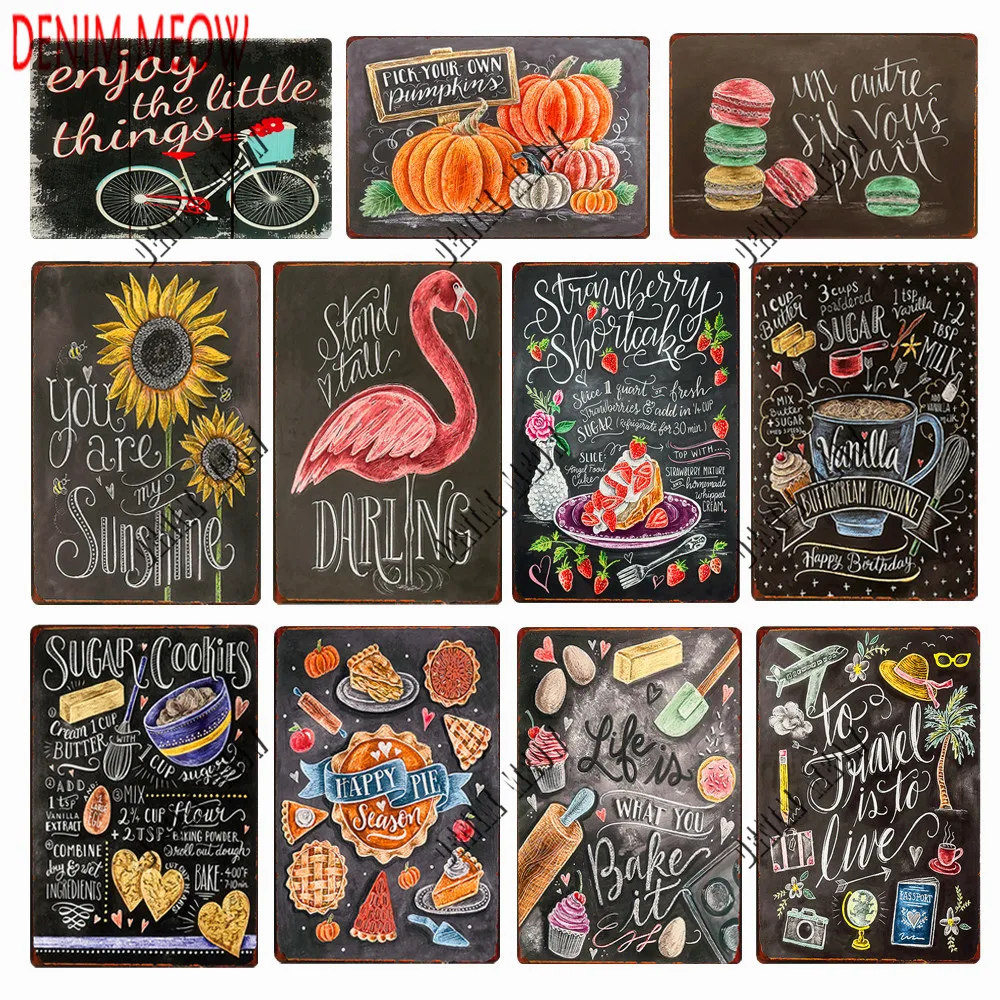 DENIM MEOW
enjoy
the little
things
PICK-YOUR-OWN
pumpkins
un autre
s'il vous
plaît
You
are
my
Sunshine
Stand
tall,
DARLING
Strawberry
Shortcake
Slice 1 quart of fresh
Strawberries & add in ¼ CUP
SUGAR (refrigerate for 30 min)
SLICE:
Angel Food
Cake
TOP WITH...
STRAWBERRY MIXTURE
and homemade
whipped
CREAM
1 CUP
Butter
3 cups
powdered
SUGAR
1 tsp
Vanilla
1-2
TBSP
MILK
MIX
Butter
+ SUGAR
ADD
VANILLA +
milk
Vanilla
BUTTERCREAM FROSTING
Happy Birthday
SUGAR COOKIES
① Cream 1 CUP
BUTTER WITH
1 CUP sugar
② ADD
1 TSP
VANILLA
EXTRACT
AND
1 LARGE
EGG
③ MIX
2¾ CUP flour
+ 2 TSP BAKING POWDER,
roll out dough
④ COMBINE
dry & wet
INGREDIENTS
CUT OUT
SHAPES
BAKE: 400°F
7-10 min
HAPPY PIE
Season
Life is
WHAT YOU
Bake
it
to
travel
is to
live
PASSPORT
DENIM MEOW